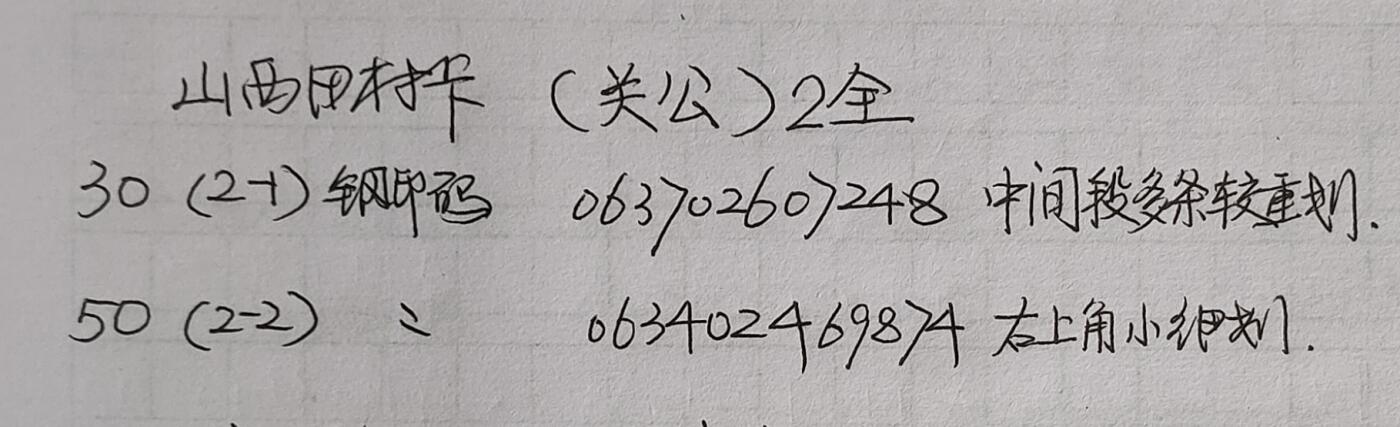 山西田村卡（关公）2全
30（2-1）钢印码 063702607248 中间段多条较重划.
50（2-2） 〃 063402469874 右上角小细划.